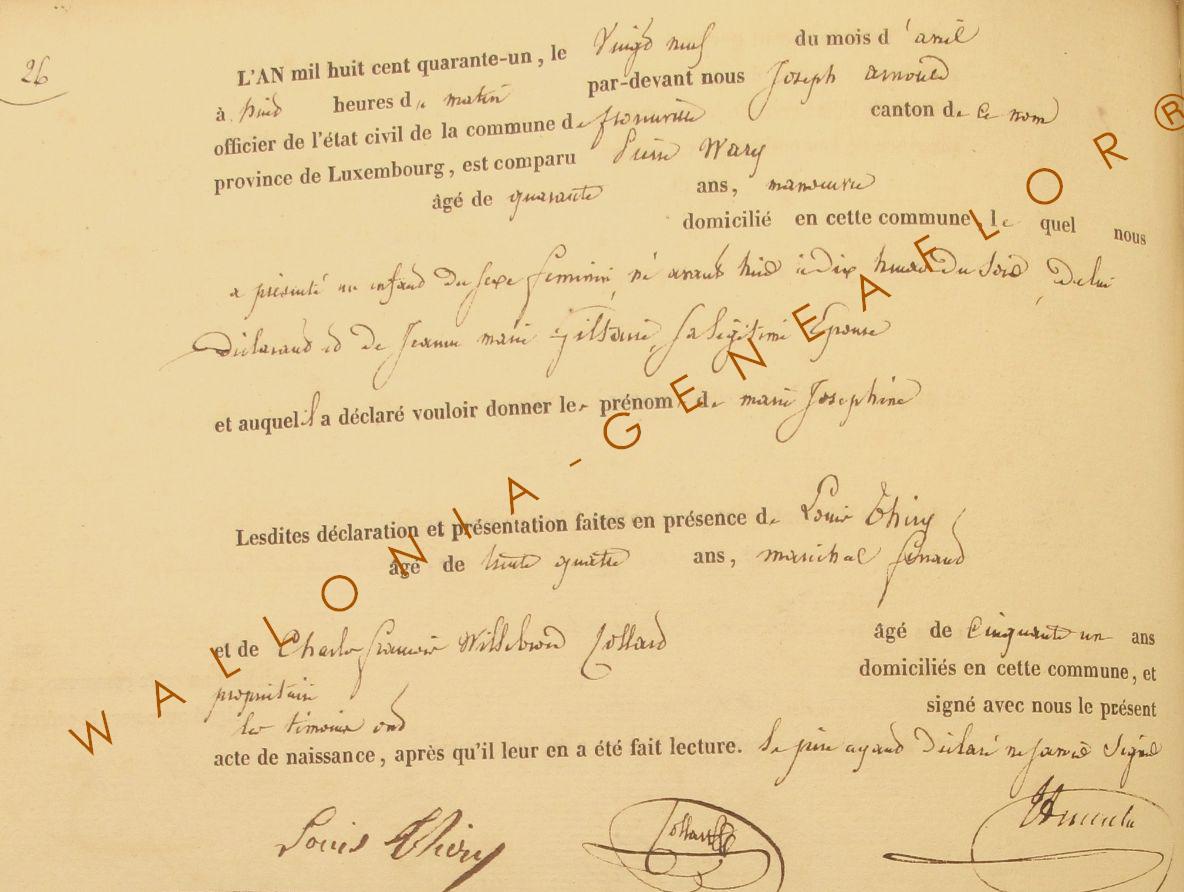 26
L'AN mil huit cent quarante-un, le Vingt neuf du mois d'avril
à huit heures du matin par-devant nous Joseph Arnould
officier de l'état civil de la commune de florenville canton de ce nom
province de Luxembourg, est comparu Pierre Wary
âgé de quarante ans, manoeuvre
domicilié en cette commune, le quel nous
a présenté un enfant du sexe feminin, né avant hier à dix heures du soir, de lui
Déclarant et de Jeanne marie Gilsoul, sa légitime Epouse
et auquel il a déclaré vouloir donner les prénoms de marie Josephine
Lesdites déclaration et présentation faites en présence de Louis Thiry
âgé de trente quatre ans, maréchal ferrant
et de Charles françois Willebrord Collard âgé de cinquante un ans
propriétaire domiciliés en cette commune, et
les témoins ont signé avec nous le présent
acte de naissance, après qu'il leur en a été fait lecture. le père ayant déclaré ne savoir signé
Louis Thiry Collard Arnould
WALLONIA-GENEAFLOR®